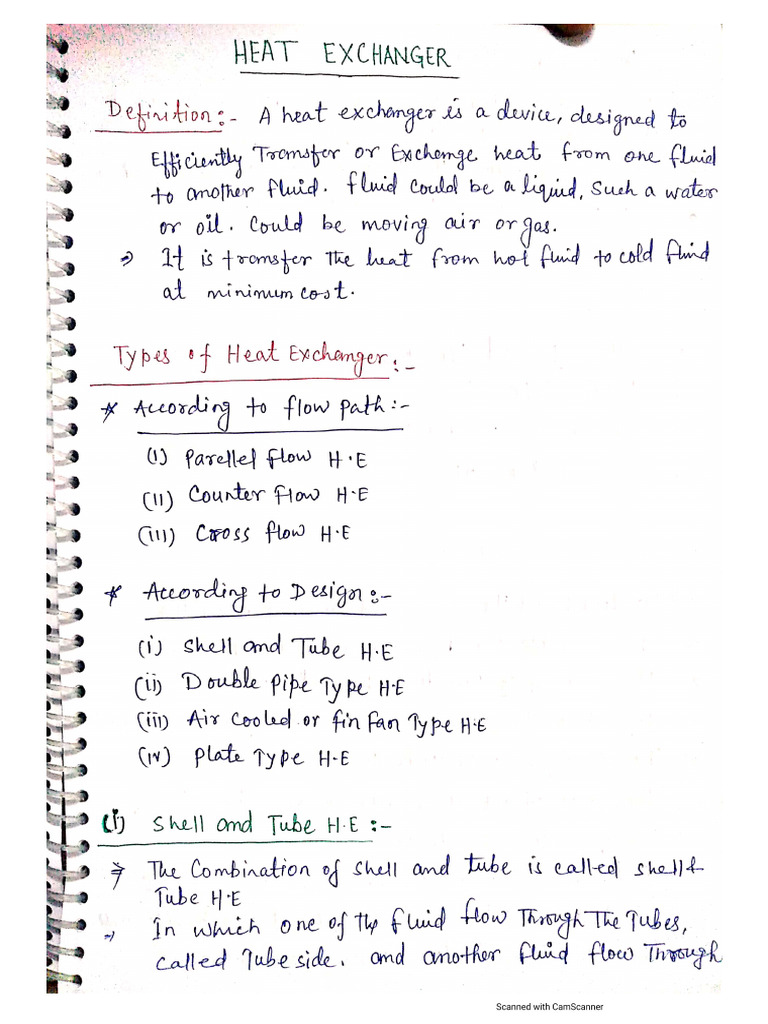 HEAT EXCHANGER
Definition:- A heat exchanger is a device, designed to
Efficiently Transfer or Exchange heat from one fluid
to another fluid. fluid could be a liquid, Such a water
or oil. Could be moving air or gas.
⇒ It is transfer the heat from hot fluid to cold fluid
at minimum cost.
Types of Heat Exchanger:-
* According to flow path:-
(I) Parellel flow H.E
(II) Counter flow H.E
(III) Cross flow H.E
* According to Design:-
(i) Shell and Tube H.E
(ii) Double Pipe Type H.E
(iii) Air Cooled or fin fan Type H.E
(iv) Plate Type H.E
(i) Shell and Tube H.E:-
⇒ The Combination of Shell and tube is called shell &
Tube H.E
⇒ In which one of the fluid flow Through The Tubes,
called Tube side. and another fluid flow Through
Scanned with CamScanner